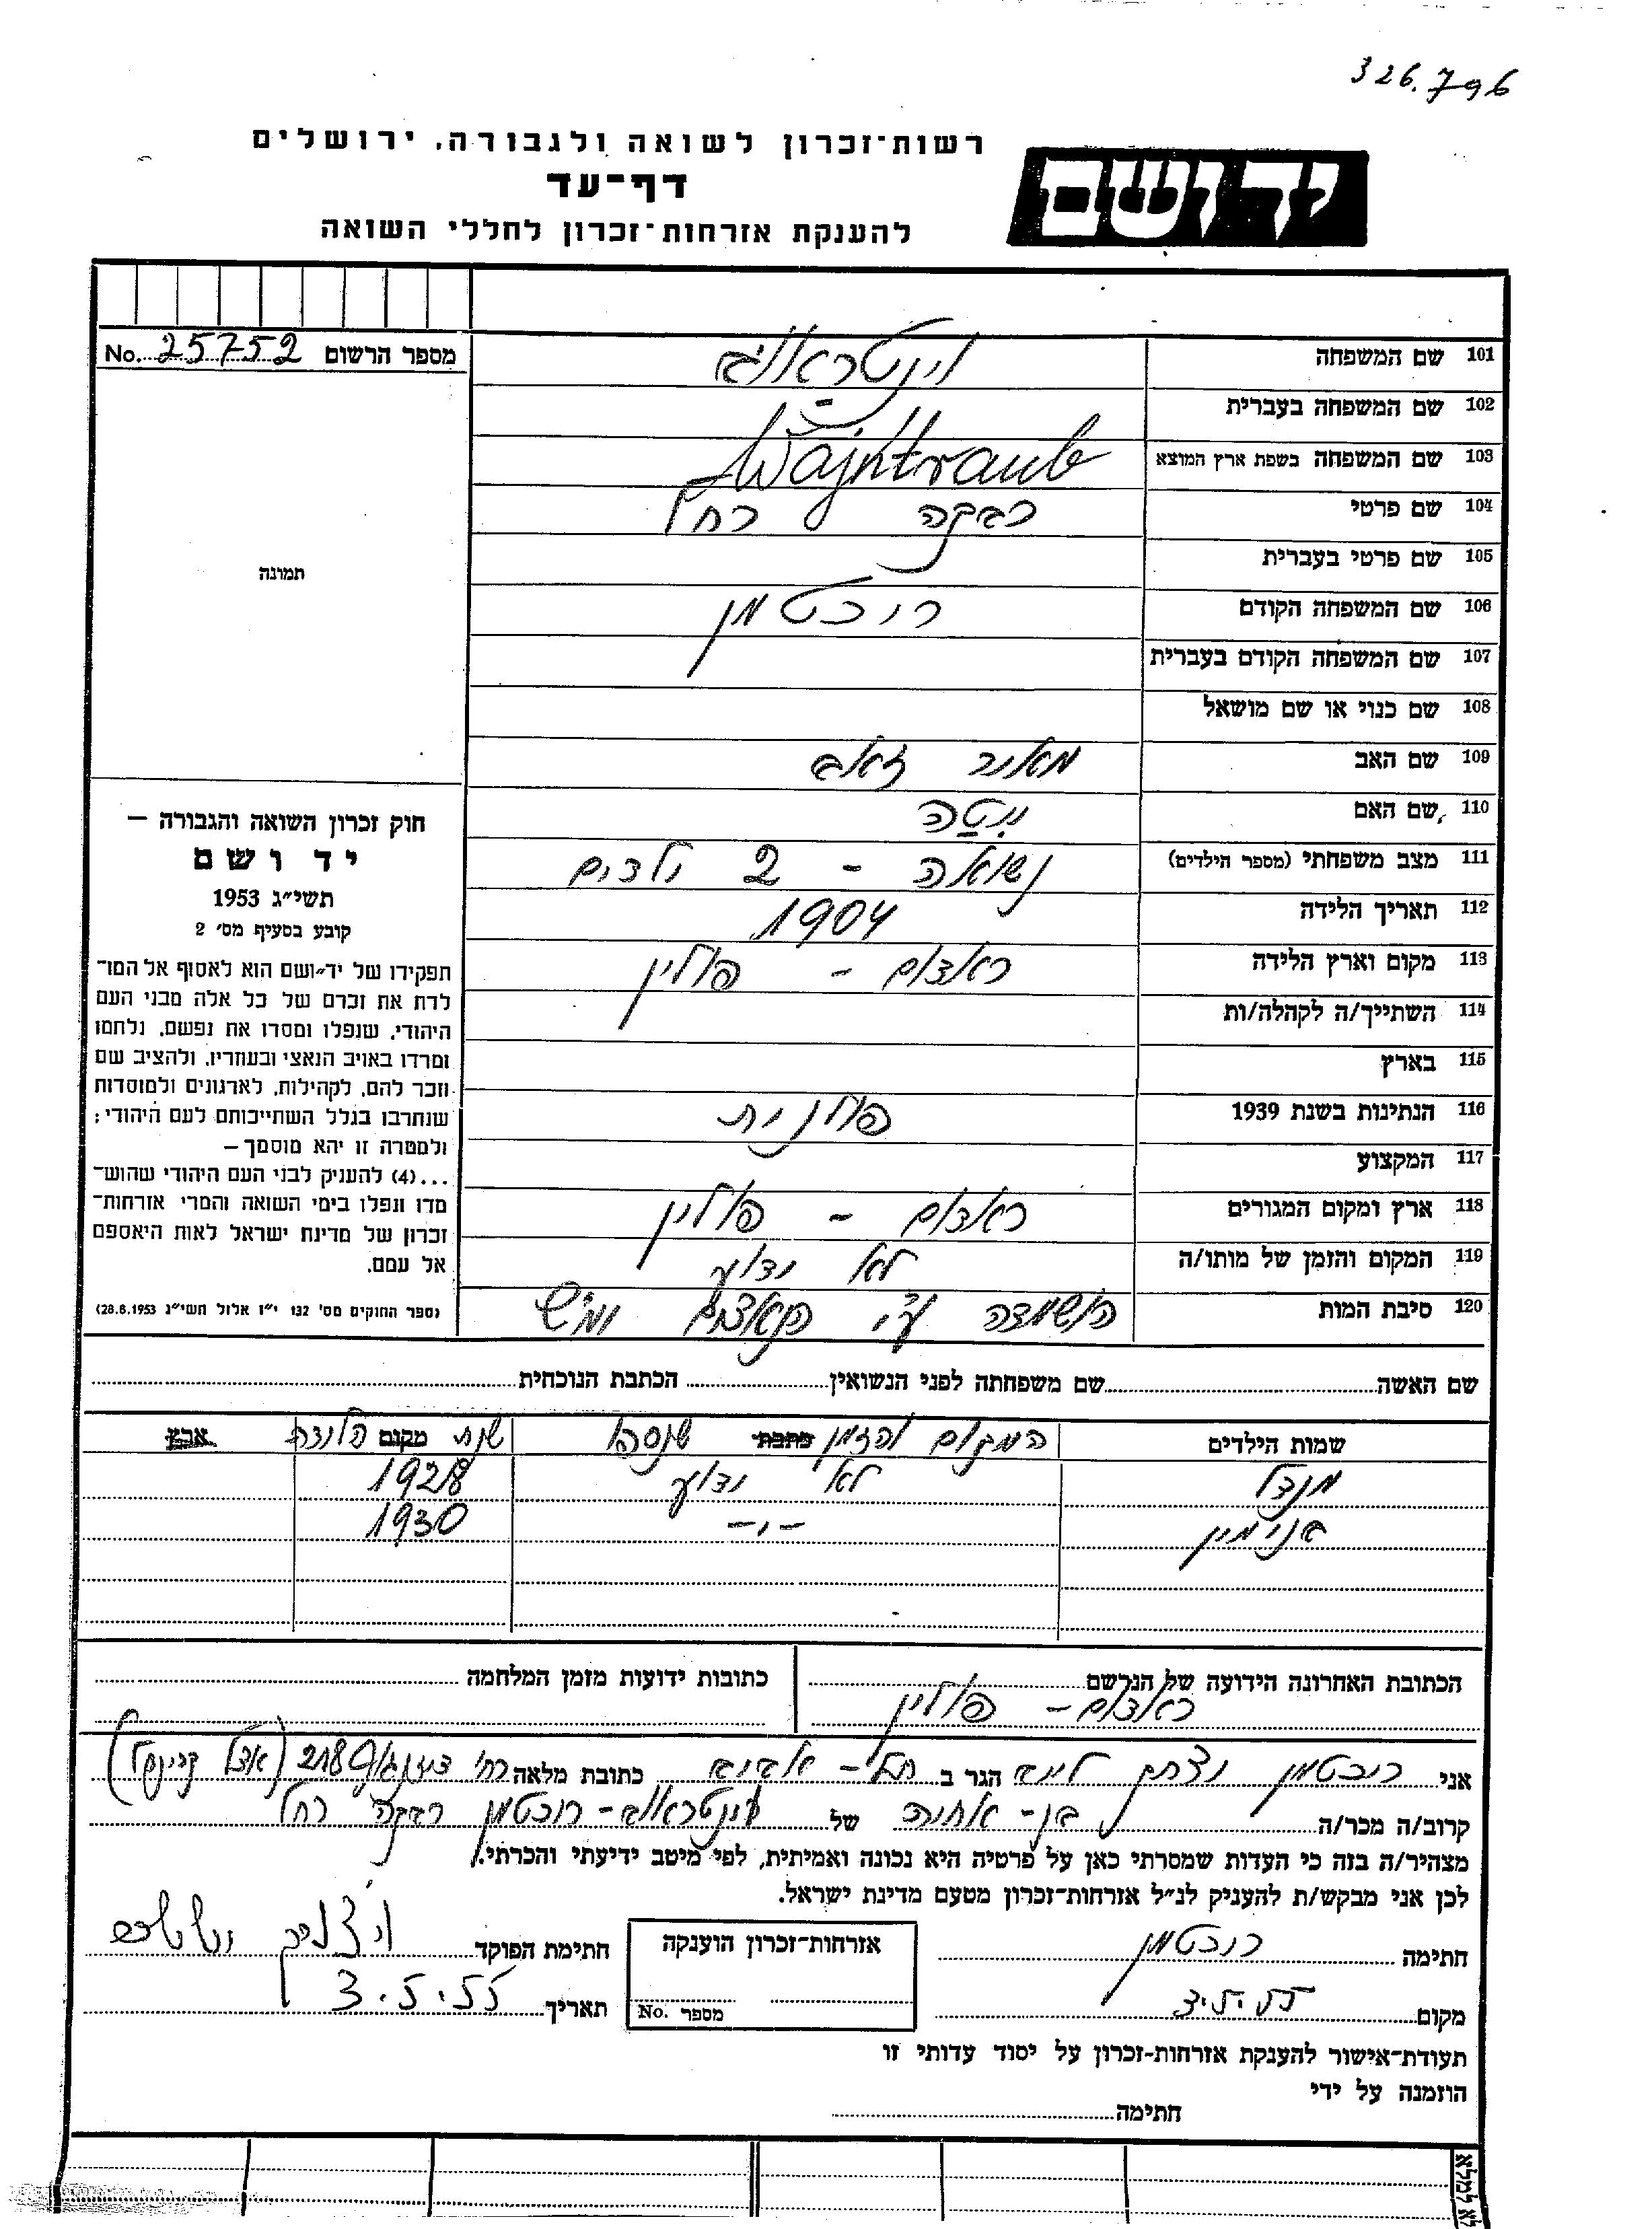 326.796
רשות־זכרון לשואה ולגבורה, ירושלים
ידושם
דף־עד
להענקת אזרחות־זכרון לחללי השואה
מספר הרשום No. 25752
תמונה
101 שם המשפחה וינטראוב
102 שם המשפחה בעברית
103 שם המשפחה בשפת ארץ המוצא Wajntraub
104 שם פרטי רבקה רחל
105 שם פרטי בעברית
106 שם המשפחה הקודם רוכטמן
107 שם המשפחה הקודם בעברית
108 שם כנוי או שם מושאל
109 שם האב מאיר זאב
110 שם האם ניטה
111 מצב משפחתי (מספר הילדים) נשואה - 2 ילדים
112 תאריך הלידה 1904
113 מקום וארץ הלידה ראדום - פולין
114 השתייך/ה לקהלה/ות
115 בארץ
116 הנתינות בשנת 1939 פולנית
117 המקצוע
118 ארץ ומקום המגורים ראדום - פולין
119 המקום והזמן של מותו/ה לא ידוע
120 סיבת המות הושמדה ע"י הנאצים ימ"ש
חוק זכרון השואה והגבורה —
יד ושם
תשי״ג 1953
קובע בסעיף מס׳ 2
תפקידו של יד־ושם הוא לאסוף אל המו־
לדת את זכרם של כל אלה מבני העם
היהודי, שנפלו ומסרו את נפשם, נלחמו
ומרדו באויב הנאצי ובעוזריו, ולהציב שם
וזכר להם, לקהילות, לארגונים ולמוסדות
שנחרבו בגלל השתייכותם לעם היהודי;
ולמטרה זו יהא מוסמך—
...(4) להעניק לבני העם היהודי שהוש־
מדו ונפלו בימי השואה והמרי אזרחות־
זכרון של מדינת ישראל לאות היאספם
אל עמם.
(ספר החוקים מס׳ 132 י״ז אלול תשי״ג 28.8.1953)
שם האשה שם משפחתה לפני הנשואין הכתבת הנוכחית
שמות הילדים המקום והזמן כתבת שנספו שנת מקום הלידה ארץ
מנדל לא ידוע 1928
בנימין -"- 1930
הכתובת האחרונה הידועה של הנרשם כתובות ידועות מזמן המלחמה
ראדום - פולין
אני רוכטמן יצחק לייב הגר ב תל - אביב כתובת מלאה רח' דיזנגוף 218 (אצל
קרוב/ה מכר/ה בן - אחיה של וינטראוב - רוכטמן רבקה רחל
מצהיר/ה בזה כי העדות שמסרתי כאן על פרטיה היא נכונה ואמיתית, לפי מיטב ידיעתי והכרתי.
לכן אני מבקש/ת להעניק לנ״ל אזרחות־זכרון מטעם מדינת ישראל.
חתימה רוכטמן
אזרחות־זכרון הוענקה
מספר No.
חתימת הפוקד
מקום 3.5.55
תאריך 3.5.55
תעודת־אישור להענקת אזרחות־זכרון על יסוד עדותי זו
הוזמנה על ידי
חתימה
לא למלא